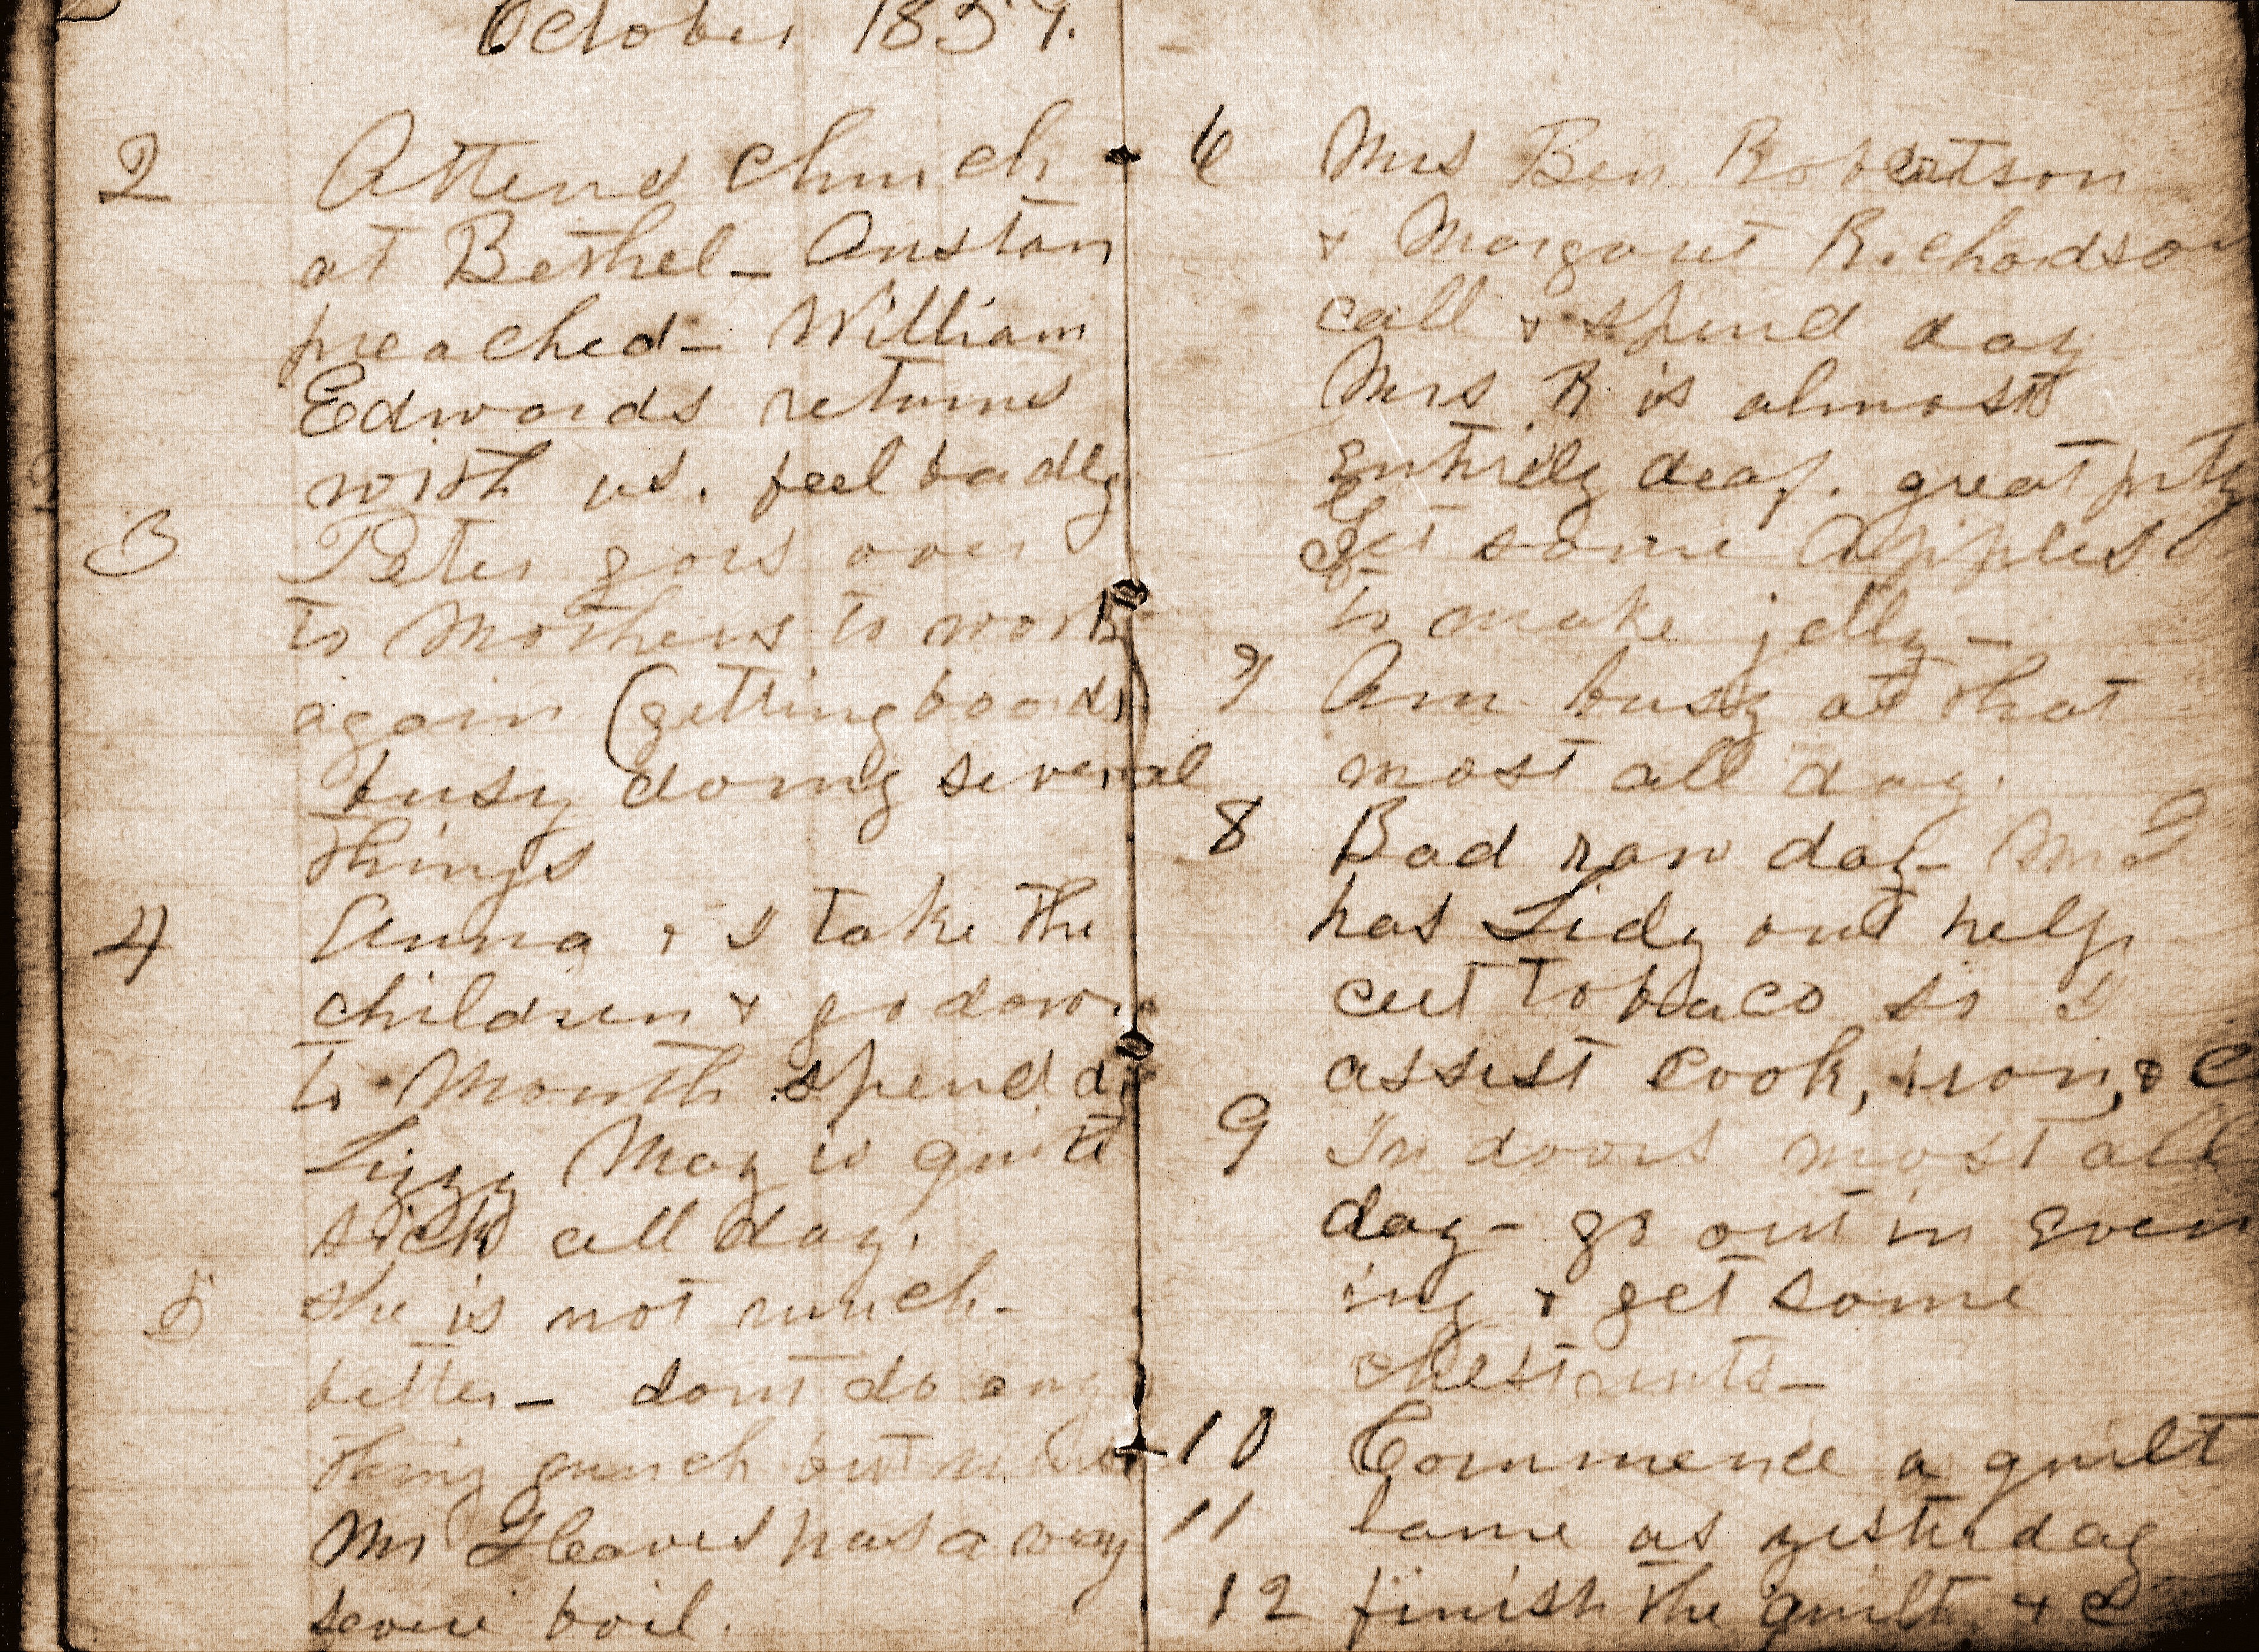 October 1859.
2 Attend church
at Bethel - Anstan
preached - William
Edwards returns
with us. feel badly
3 Peter goes over
to Mothers to work
again (getting boards)
busy doing several
things
4 Anna & I take the
children & go down
to Mouth spend d
Lizzy May is quite
sick all day.
5 She is not much
better - dont do any
thing much but
Mr Gleaves has a very
severe boil.
6 Mrs Ben Robertson
& Margaret Richardson
call & spend day
Mrs R is almost
entirely deaf. great pity
Get some Apples
to make jelly -
7 Am busy at that
most all day.
8 Bad raw day - Mr G
has Lidy out help
cut Tobaco so I
assist cook, iron, & C
9 In doors most all
day - go out in even
ing & get some
chestnuts -
10 Commence a quilt
11 Same as yesterday
12 finish the quilt & C